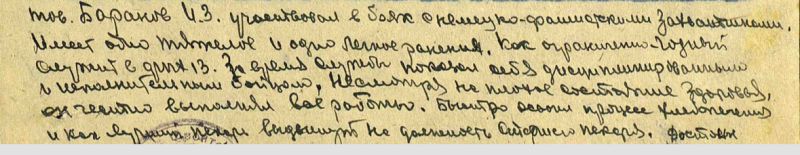 тов. Баранов И.З. участвовал в боях с немецко-фашистскими захватчиками.
Имеет одно тяжелое и одно легкое ранения. Как ограниченно-годный
служит в 13. За время службы показал себя дисциплинированным
и исполнительным бойцом. Несмотря на плохое состояние здоровья,
он честно выполнял все работы. Быстро освоил процесс хлебопечения
и как лучший пекарь выдвинут на должность старшего пекаря. Достоин